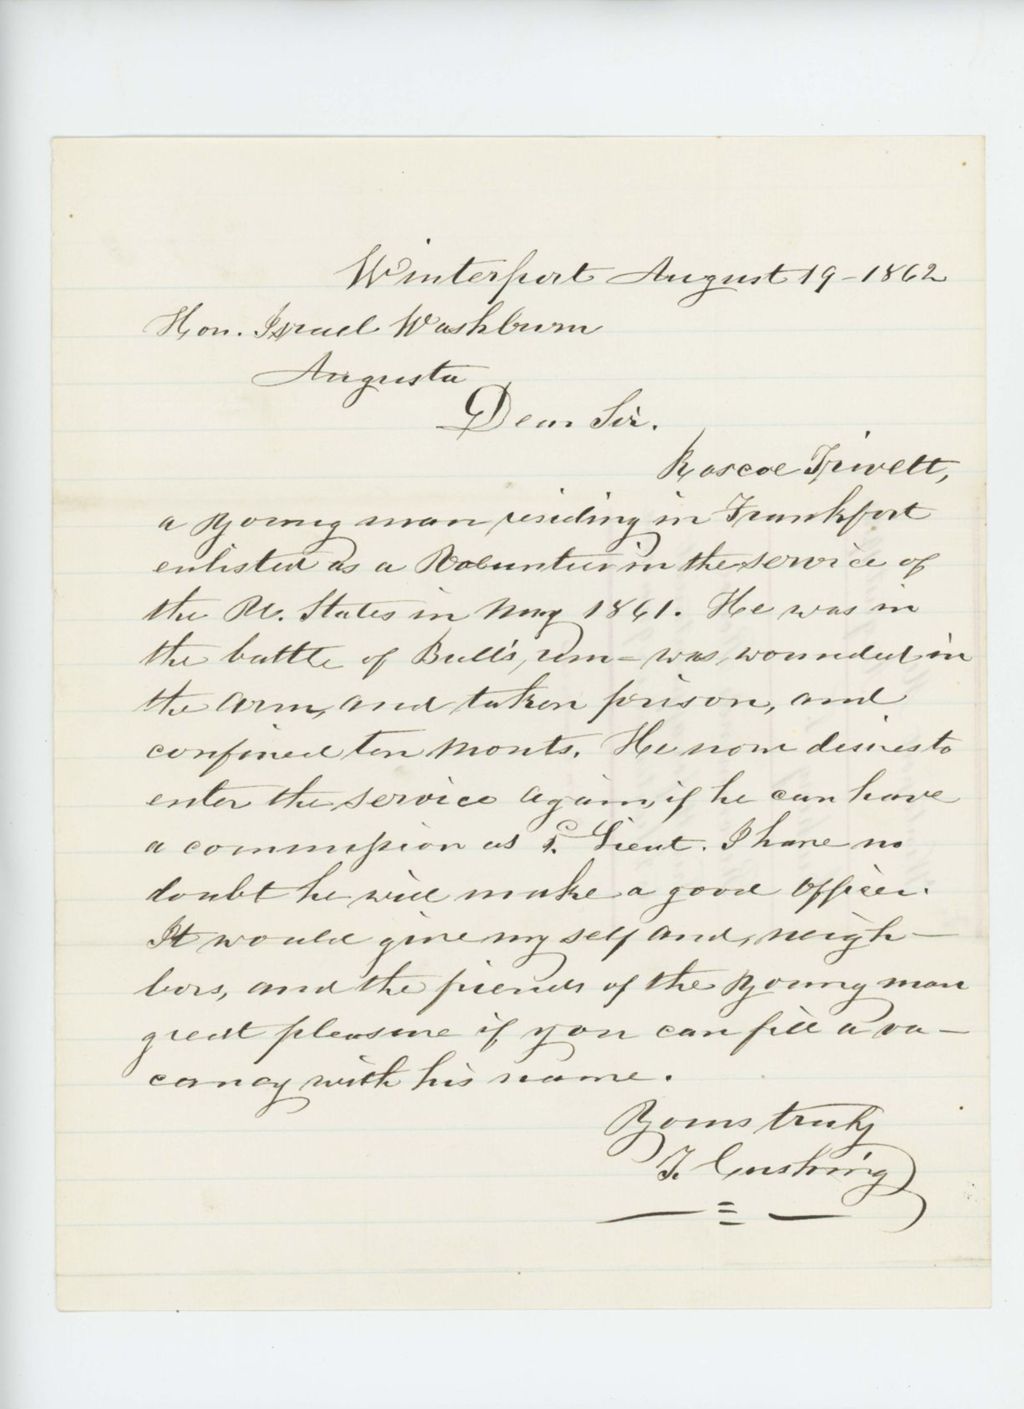 Winterport August 19-1862
Hon. Israel Washburn
Augusta
Dear Sir.
Roscoe Trivett,
a young man residing in Frankfort
enlisted as a Volunteer in the service of
the U. States in May 1861. He was in
the battle of Bull's, run - was wounded in
the arm, and taken prison, and
confined ten monts. He now desires to
enter the service again, if he can have
a commission as Lieut. I have no
doubt he will make a good officer.
It would give my self and, neigh-
bors, and the friends of the young man
great pleasure if you can fill a va-
cancy with his name.
Yours truly
T. Cushing